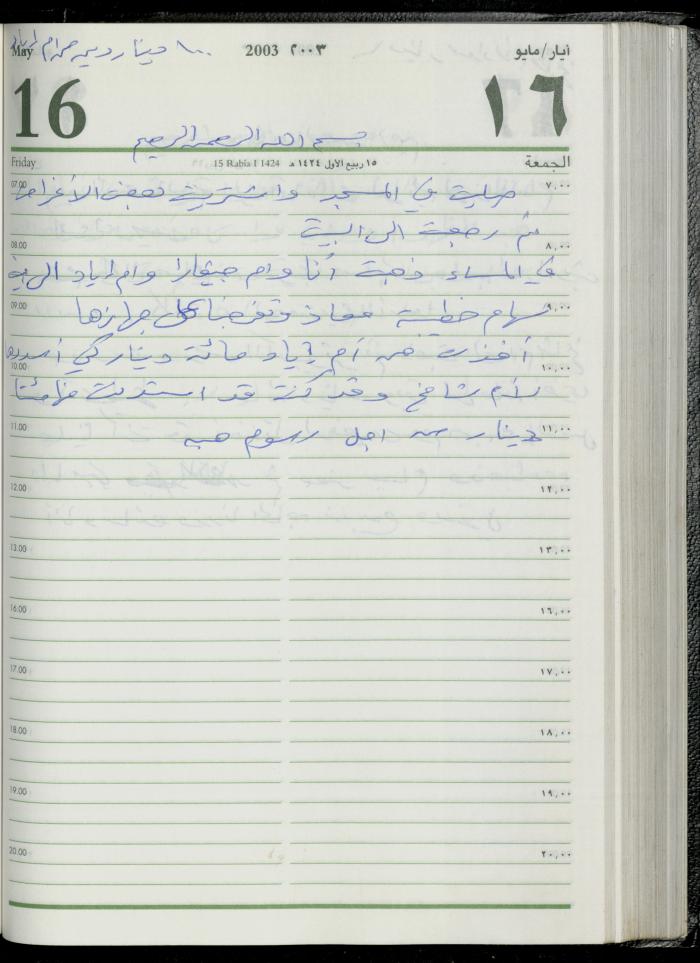 May ١٠٠ دينار دين من ام اياد 2003 ٢٠٠٣ أيار/مايو
16 ١٦
بسم الله الرحمن الرحيم
Friday 15 Rabia I 1424 ١٥ ربيع الاول ١٤٢٤ هـ الجمعة
07.00 صلية في المسجد واشتريت بعض الأغراض ٧,٠٠
ثم رجعة الى البيت
08.00 ٨,٠٠
في المساء ذهبة أنا وام جيفارا وام اياد الى بيت
09.00 سهام خطيبة معاذ وتفرجنا على جهازها ٩,٠٠
أخذت من أم اياد مائة دينار كي أسددها
10.00 ١٠,٠٠
لأم شامخ وقد كنة قد استدنت منها مئتا
11.00 دينار من اجل رسوم هبه ١١,٠٠
12.00 ١٢,٠٠
13.00 ١٣,٠٠
16.00 ١٦,٠٠
17.00 ١٧,٠٠
18.00 ١٨,٠٠
19.00 ١٩,٠٠
20.00 ٢٠,٠٠